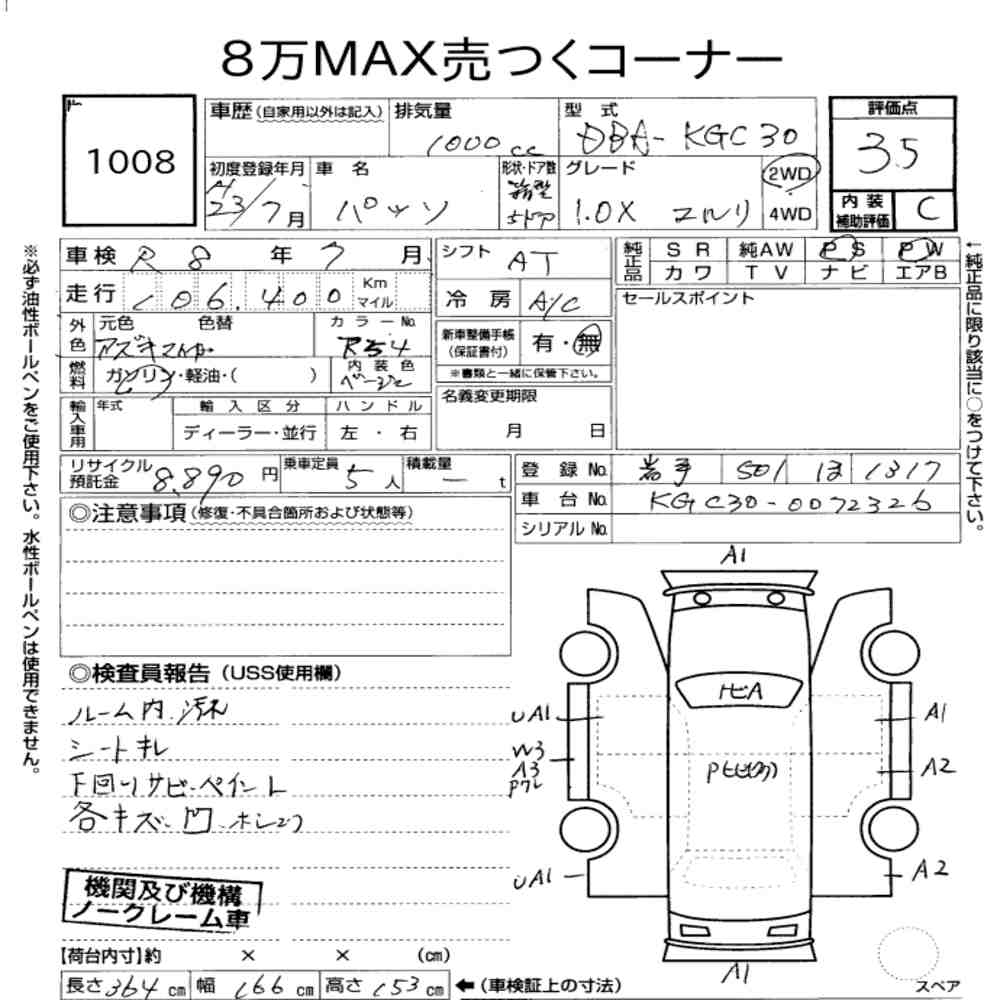 8万MAX売つくコーナー
1008
車歴(自家用以外は記入) 排気量 1000cc
型式 DBA-KGC30
評価点 3.5
初度登録年月 H23/7月 車名 パッソ
形状・ドア数 箱型 5ドア
グレード 1.0X 2WD 4WD
内装補助評価 C
車検 R8年7月
走行 106,400 Km マイル
外色 元色 色替 カラーNo. R54
燃料 ガソリン・軽油・( ) 内装色 ベージュ
輸入車用 年式 輸入区分 ハンドル
ディーラー・並行 左・右
シフト AT
冷房 A/C
新車整備手帳(保証書付) 有・無
※書類と一緒に保管下さい。
名義変更期限
月 日
純正品 SR 純AW PS PW
カワ TV ナビ エアB
セールスポイント
リサイクル預託金 8,890円 乗車定員 5人 積載量 ー t
登録No. 岩手 501 1317
車台No. KGC30-0072326
シリアルNo.
◎注意事項(修復・不具合箇所および状態等)
◎検査員報告(USS使用欄)
ルーム内汚れ
シートキレ
下回りサビ・ペイント
各キズ・凹
機関及び機構
ノークレーム車
【荷台内寸】約 × × (cm)
長さ364cm 幅166cm 高さ153cm ←(車検証上の寸法)
A1
UA1
A1
W3
A3
A2
UA1
A2
A1
スペア
※必ず油性ボールペンをご使用下さい。水性ボールペンは使用できません。
←純正品に限り該当に○をつけて下さい。